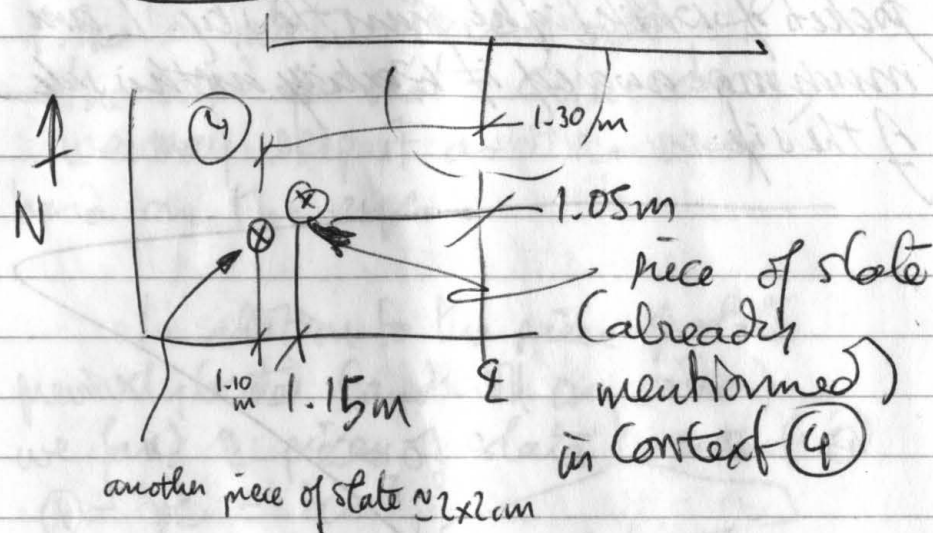 4
1.30m
N
1.05m
piece of slate
(already
mentionned)
in Context 4
1.10
m
1.15m
℄
another piece of slate ≃2x2cm